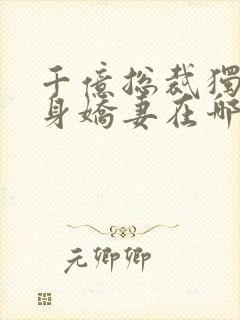 千億总裁獨
身嬌妻在哪
元卿卿